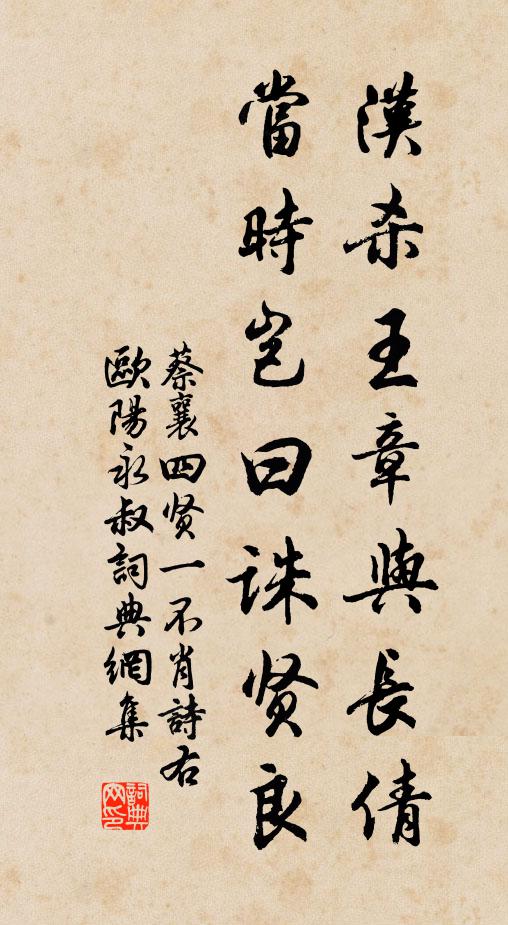 漢杀王章與長倩
當時岂曰誅贤良
蔡襄四贤一不肖詩右
歐陽永叔詞典網集
詞典网印